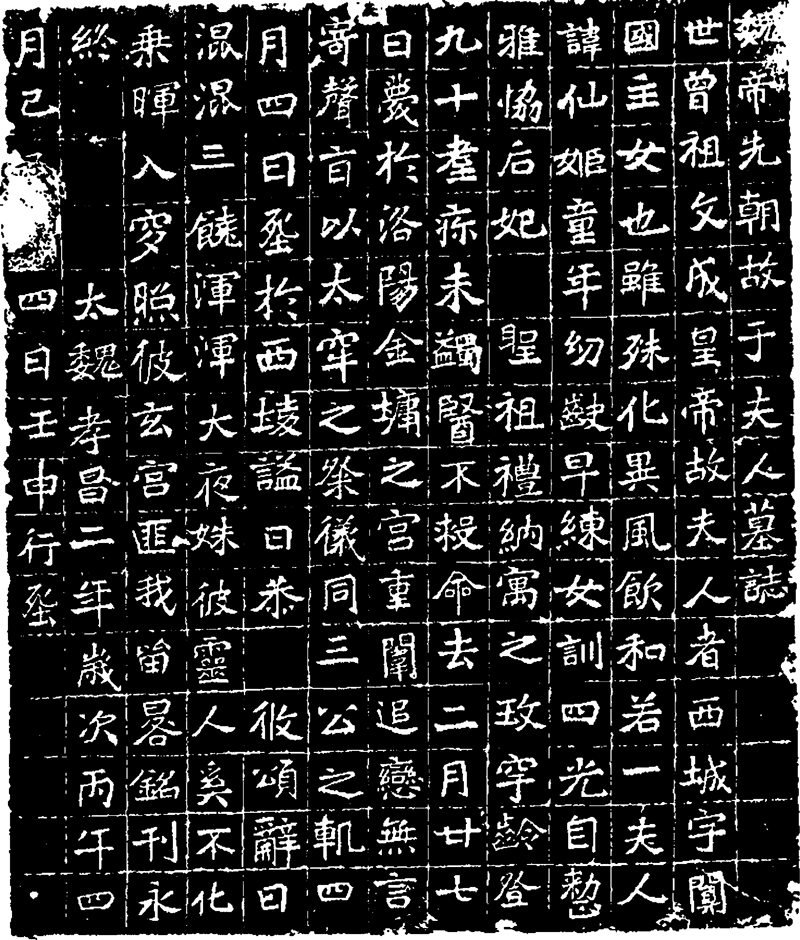 魏帝先朝故于夫人墓誌
世曾祖文成皇帝故夫人者西城宇闐
國主女也雖殊化異風飲和若一夫人
諱仙姬童年幼齔早練女訓四光自整
雅恊后妃聖祖禮納寓之玫穹齡登
九十耋疹未蠲醫不救命去二月廿七
日薨於洛陽金墉之宮重闈追戀無言
寄聲旨以太牢之祭儀同三公之軌四
月四日窆於西陵謚曰恭攸頌辭曰
混混三饒渾渾大夜姝彼靈人奚不化
乘暉入穸照彼玄宮匪我留晷銘刊永
終太魏孝昌二年歲次丙午四
月己四日壬申行窆